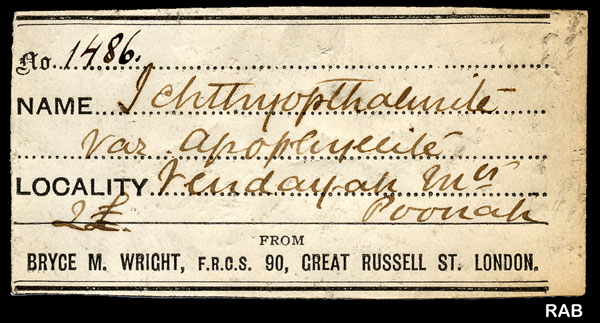 No. 1486.
NAME Ichthyopthalmite
var. apophyllite
LOCALITY Vendayah Mts
2£. Poonah
FROM
BRYCE M. WRIGHT, F.R.G.S. 90, GREAT RUSSELL ST. LONDON.
RAB